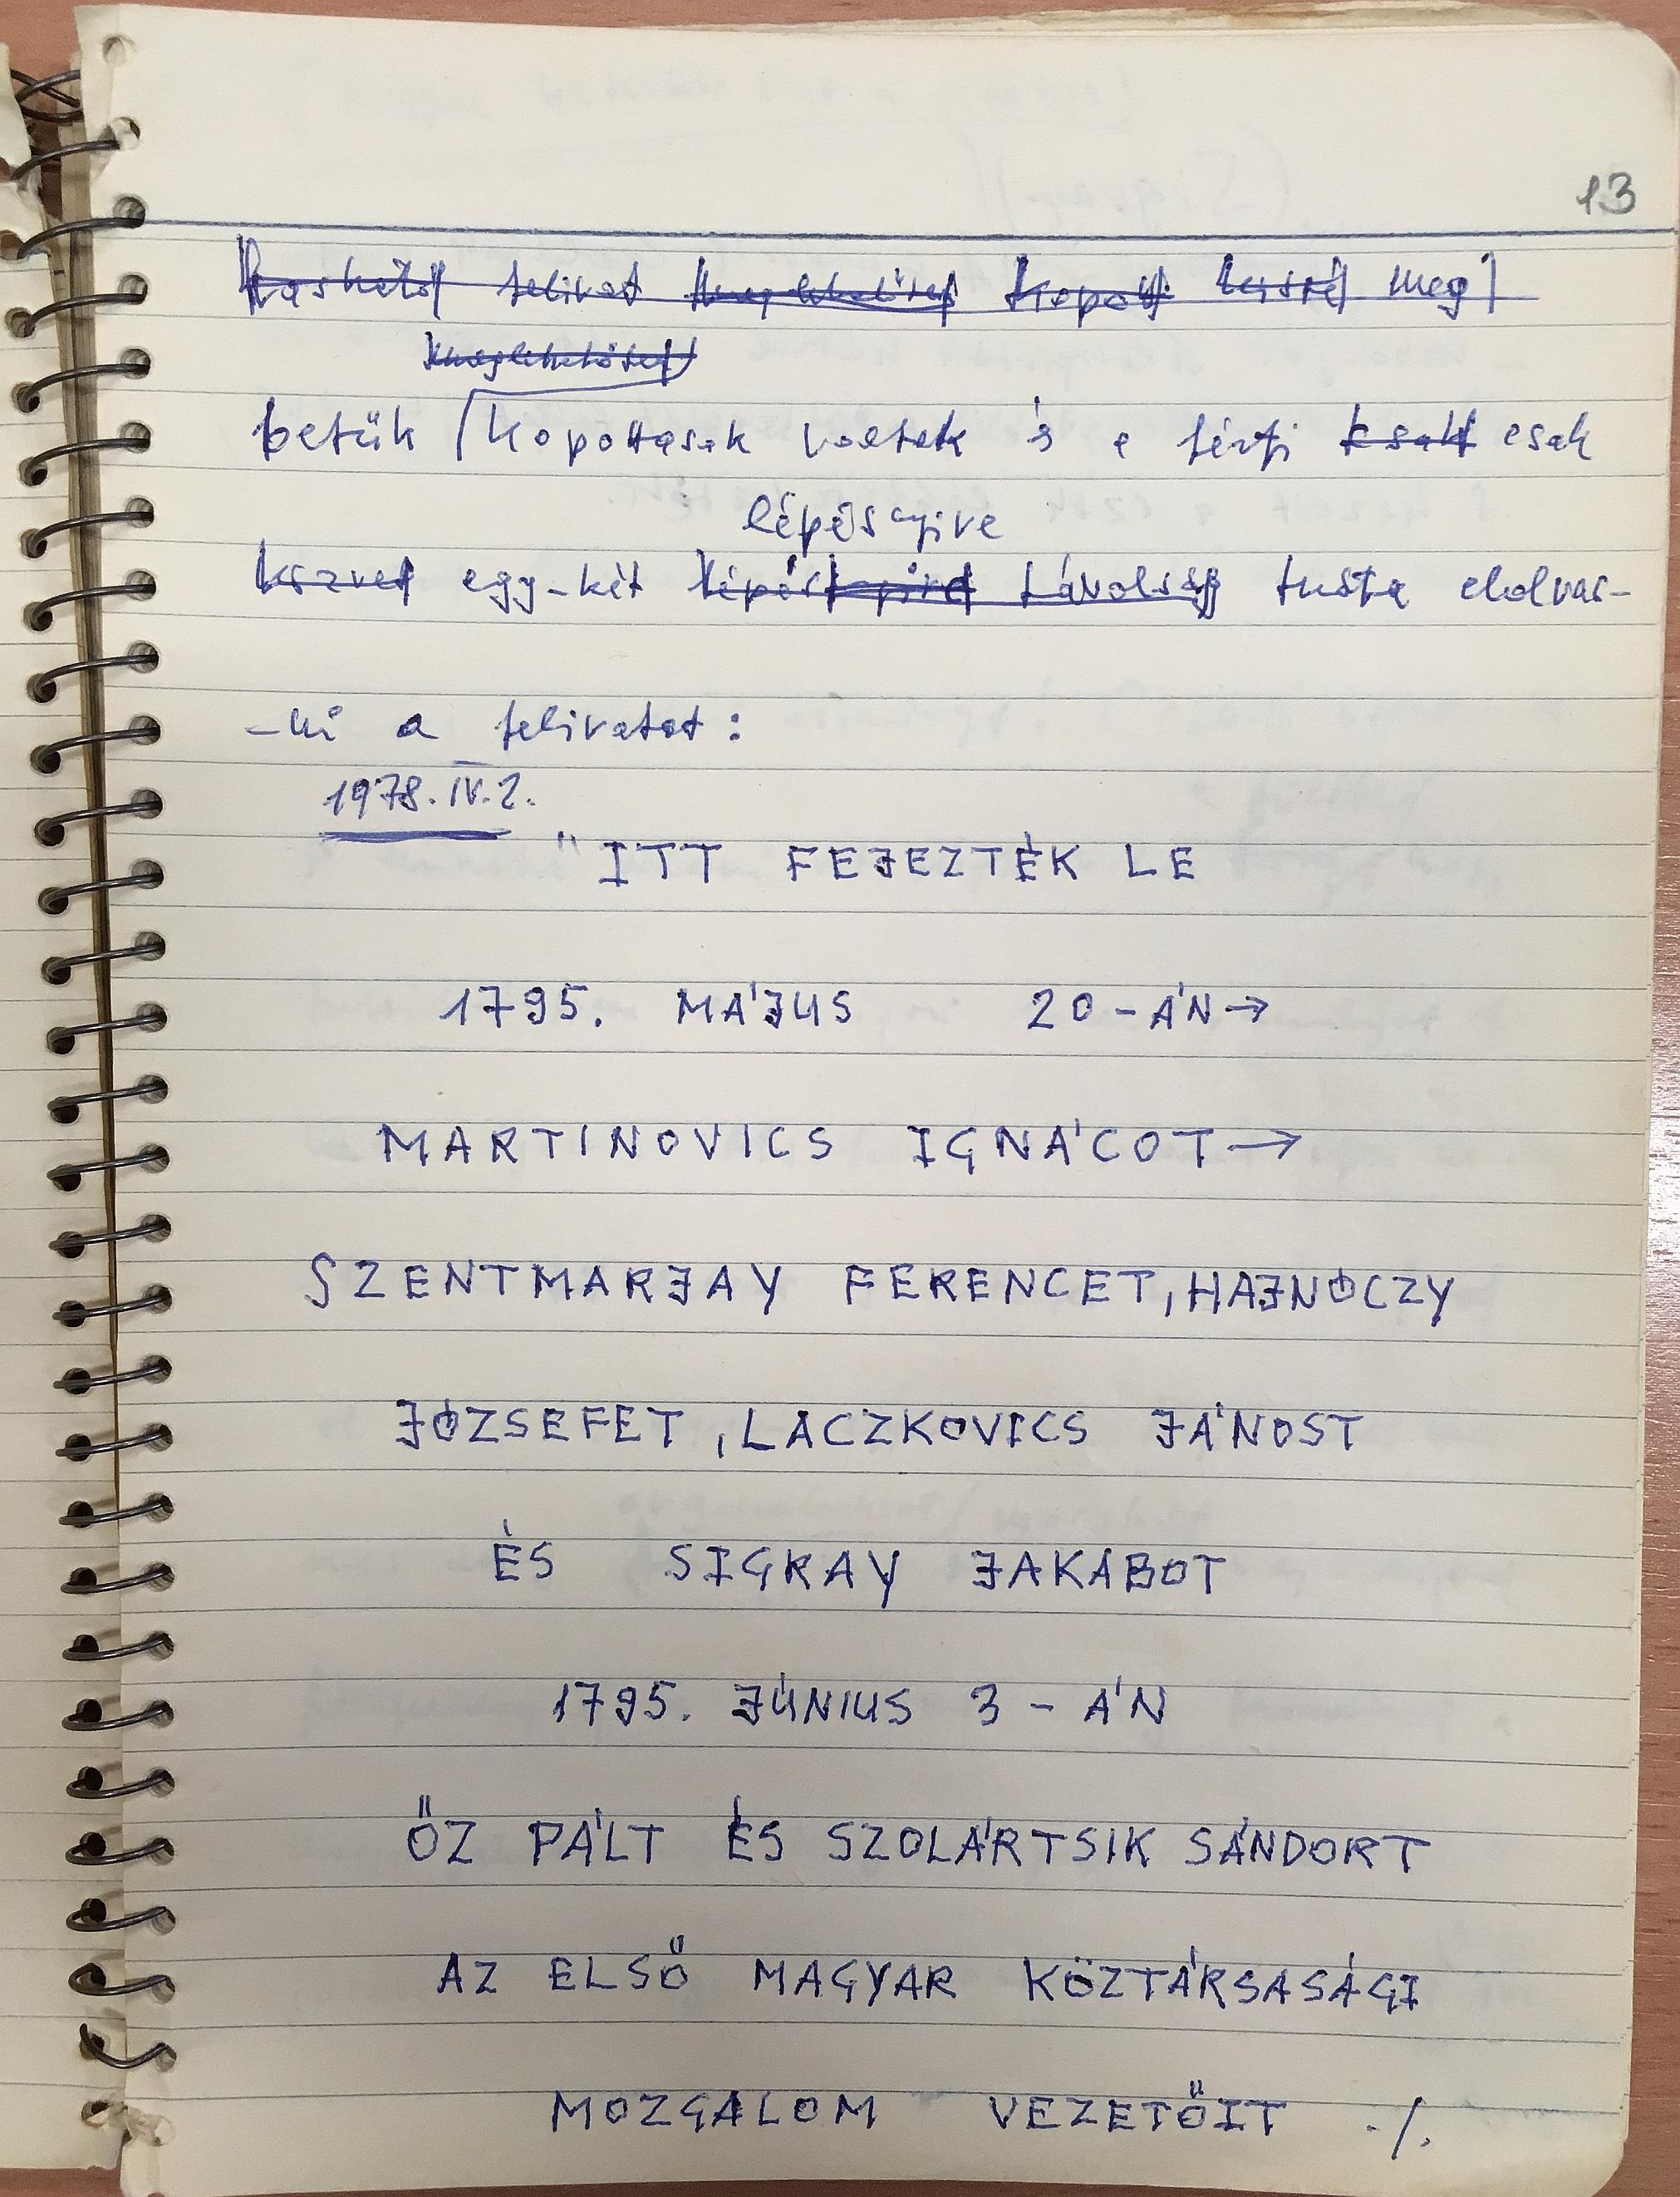 13
felirat meg
betük kopottasak voltak és a férfi csak
lépésnyire
egy-két távolság tudta elolvas-
-ni a feliratot:
1978. IV. 2.
"ITT FEJEZTÉK LE
1795. MÁJUS 20-ÁN→
MARTINOVICS IGNÁCOT→
SZENTMARJAY FERENCET, HAJNÓCZY
JÓZSEFET, LACZKOVICS JÁNOST
ÉS SIGRAY JAKABOT
1795. JÚNIUS 3 - ÁN
ŐZ PÁLT ÉS SZOLÁRTSIK SÁNDORT
AZ ELSŐ MAGYAR KÖZTÁRSASÁGI
MOZGALOM VEZETŐIT ./.